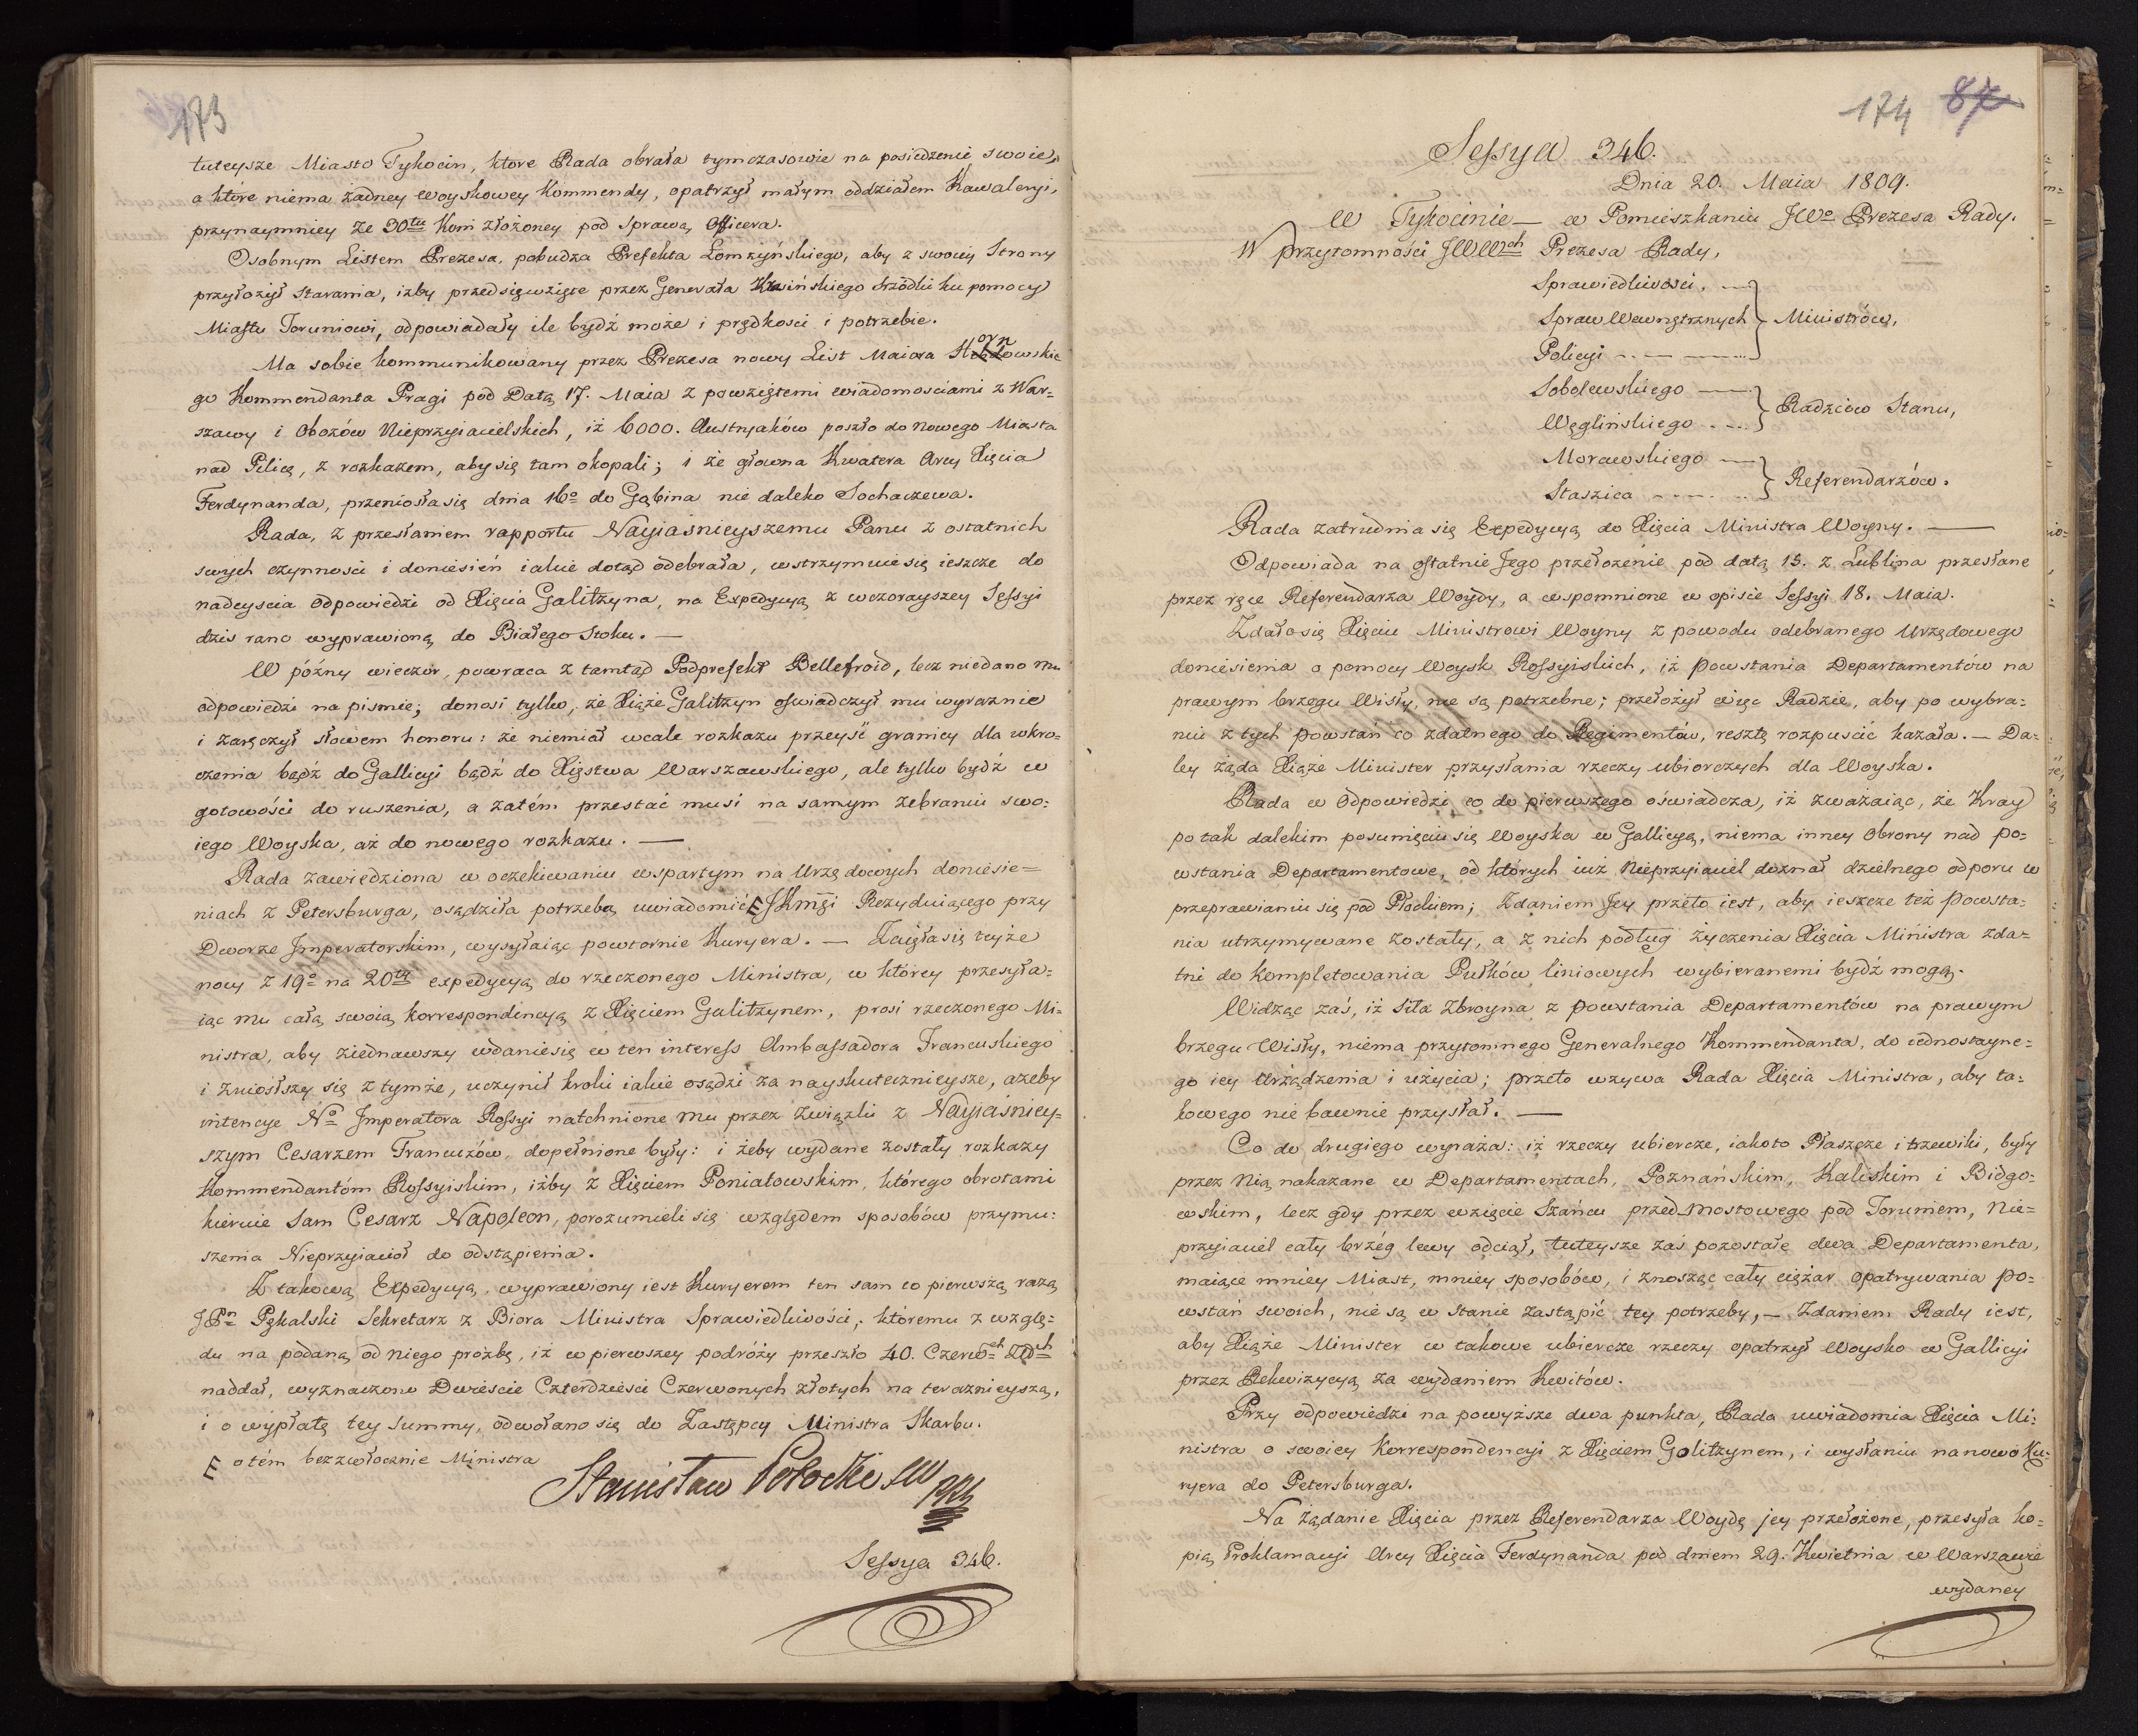 173
tuteysze Miasto Tykocin, ktore Rada obrała tymczasowie na posiedzenie swoie,
a które niema żadney Woyskowey Kommendy, opatrzył małym oddziałem Kawaleryi,
przynaymniey ze 30tu Koni złożoney pod sprawą Officera.
Osobnym Listem Prezesa, pobudza Prefekta Łomżyńskiego, aby z swoiey Strony
przyłożył starania, iżby przedsięwzięte przez Generała srzodki ku pomocy
Miastu Toruniowi, odpowiadały ile bydź może i prędkości i potrzebie.
Ma sobie kommunikowany przez Prezesa nowy List Maiora Hornowskie
go Kommendanta Pragi pod Datą 17. Maia z powziętemi wiadomosciami z War=
szawy i Obozów Nieprzyiacielskich, iż 6000. Austryaków poszło do Nowego Miasta
nad Pilicą, z rozkazem, aby się tam okopali; i że głowna Kwatera Arcy Xięcia
Ferdynanda, przeniosła się dnia 16o do Gąbina nie daleko Sochaczewa.
Rada, z przesłaniem rapportu Nayiaśnieyszemu Panu z ostatnich
swych czynności i doniesień iakie dotąd odebrała, wstrzymuie się ieszcze do
nadeyscia odpowiedzi od Xięcia Galitzyna, na Expedycyą z wczorayszey Sessyi
dzis rano wyprawioną do Białego Stoku. —
W późny wieczor, powraca z tamtąd Podprefekt Bellefroid, lecz niedano mu
odpowiedzi na pismie; donosi tylko, że Xiąże Galitzyn oświadczył mu wyraznie
i zaręczył słowem honoru: że niemiał wcale rozkazu przeyść granicy dla wkro=
czenia bądź do Gallicyi bądź do Xięstwa Warszawskiego, ale tylko bydź w
gotowości do ruszenia, a zatém przestać musi na samym zebraniu swo=
iego Woyska, aż do nowego rozkazu. —
Rada zawiedziona w oczekiwaniu wspartym na Urzędowych doniesie=
niach z Petersburga, osądziła potrzebą uwiadomić Rezyduiącego przy
Dworze Imperatorskim, wysyłaiąc powtornie Kuryera. — Zaięła się teyże
nocy z 19o na 20ty expedycyą do rzeczonego Ministra, w którey przesyła=
iąc mu całą swoią korrespondencyą z Xięciem Galitzynem, prosi rzeczonego Mi=
nistra, aby ziednawszy wdanie się w ten interess Ambassadora Francuskiego
i zniosłszy się z tymże, uczynił kroki iakie osądzi za nayskutecznieysze, ażeby
intencye No Imperatora Rossyi natchnione mu przez związki z Nayiaśniey=
szym Cesarzem Francuzów, dopełnione były: i żeby wydane zostały rozkazy
Kommendantóm Rossyiskim, iżby z Xięciem Poniatowskim, którego obrotami
kieruie sam Cesarz Napoleon, porozumieli się względem sposobów przymu=
szenia Nieprzyiacioł do odstąpienia.
Z takową Expedycyą, wyprawiony iest Kuryerem ten sam co pierwszą razą
JPn Pękalski Sekretarz z Biora Ministra Sprawiedliwości, któremu z wzglę=
du na podaną od niego prozbę, iż w pierwszey podróży przeszło 40. Czerwch Złch
naddał, wyznaczono Dwieście Czterdzieści Czerwonych złotych na teraznieyszą,
i o wypłatę tey summy, odwołano się do Zastępcy Ministra Skarbu.
E otém bezzwłocznie Ministra
Stanisław Potocki
Sessya 346.
174 87
Sessya 346.
Dnia 20. Maia 1809.
W Tykocinie — w Pomieszkaniu JWo Prezesa Rady.
W przytomności JWWch Prezesa Rady,
Sprawiedliwości, —
Spraw Wewnętrznych } Ministrów,
Policyi — —
Sobolewskiego —
Węglińskiego } Radzców Stanu,
Morawskiego —
Staszica } Referendarzów.
Rada zatrudnia się Expedycyą do Xięcia Ministra Woyny. —
Odpowiada na ostatnie Jego przełożenie pod datą 15. z Lublina przesłane
przez ręce Referendarza Woydy, a wspomnione w opisie Sessyi 18. Maia.
Zdało się Xięciu Ministrowi Woyny z powodu odebranego Urzędowego
doniesienia o pomocy Woysk Rossyiskich, iż powstania Departamentów na
prawym brzegu Wisły, nie są potrzebne; przełożył więc Radzie, aby po wybra=
niu z tych powstań co zdatnego do Regimentów, resztę rozpuścić kazała. — Da=
ley żąda Xiąże Minister przysłania rzeczy ubiorczych dla Woyska.
Rada w odpowiedzi co do pierwszego oświadcza, iż zważaiąc, że Kray
po tak dalekim posunięciu się Woyska w Gallicyą, niema inney obrony nad po=
wstania Departamentowe, od których iuż Nieprzyiaciel doznał dzielnego odporu w
przeprawianiu się pod Płockiem; Zdaniem Jey przeto iest, aby ieszcze też powsta=
nia utrzymywane zostały, a z nich podług życzenia Xięcia Ministra zda=
tni do kompletowania Pułków liniowych wybieranemi bydź mogą.
Widząc zaś, iż siła zbroyna z powstania Departamentów na prawym
brzegu Wisły, niema przytomnego Generalnego Kommendanta, do iednostayne=
go iey Urządzenia i użycia; przeto wzywa Rada Xięcia Ministra, aby ta=
kowego nie bawnie przysłał. —
Co do drugiego wyraża: iż rzeczy ubiercze, iakoto Płaszcze i trzewiki, były
przez Nią nakazane w Departamentach, Poznańskim, Kaliskim i Bidgo=
wskim, lecz gdy przez wzięcie Szańcu przed mostowego pod Toruniem, Nie=
przyiaciel cały brzég lewy odciął, tuteysze zaś pozostałe dwa Departamenta,
maiące mniey Miast, mniey sposobów, i znosząc cały ciężar opatrywania po=
wstań swoich, nie są w stanie zastąpić tey potrzeby, — Zdaniem Rady iest,
aby Xiąże Minister w takowe ubiercze rzeczy opatrzył Woysko w Gallicyi
przez Rekwizycyą za wydaniem Kwitów.
Przy odpowiedzi na powyższe dwa punkta, Rada uwiadomia Xięcia Mi=
nistra o swoiey Korrespondencyi z Xięciem Golitzynem, i wysłaniu na nowo Ku=
ryera do Petersburga.
Na żądanie Xięcia przez Referendarza Woydę jey przełożone, przesyła ko=
pią Proklamacyi Arcy Xięcia Ferdynanda pod dniem 29. Kwietnia w Warszawie
wydaney